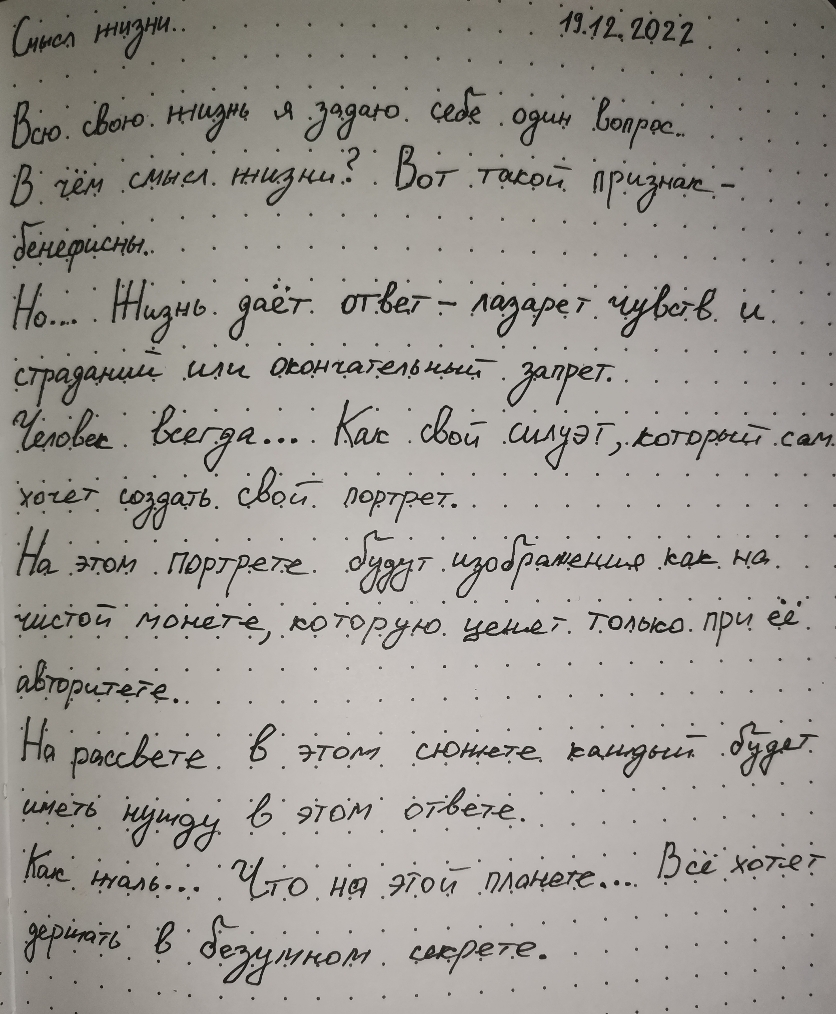 Смысл жизни.. 19.12.2022
Всю свою жизнь я задаю себе один вопрос..
В чём смысл жизни? Вот такой признак –
бенефисны..
Но.... Жизнь даёт ответ – лазарет чувств и
страданий или окончательный запрет.
Человек всегда... Как свой силуэт, который сам
хочет создать свой портрет.
На этом портрете будут изображения как на
чистой монете, которую ценят только при её
авторитете.
На рассвете в этом сюжете каждый будет
иметь нужду в этом ответе.
Как жаль... Что на этой планете... Всё хотят
держать в безумном секрете.